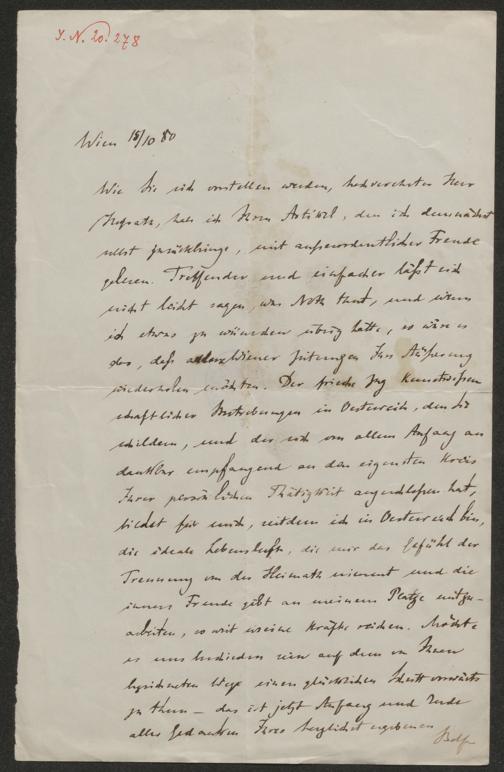 I. N. 20.278
Wien 15/10 80
Wie Sie sich vorstellen werden, hochverehrter Herr
Hofrath, habe ich Ihren Artikel, den ich demnächst
selbst zurückbringe, mit außerordentlicher Freude
gelesen. Treffender und einfacher läßt sich
nicht leicht sagen, was Noth thut, und wenn
ich etwas zu wünschen übrig hätte, so wäre es
das, daß alle Wiener Zeitungen Ihre Äußerung
wiederholen möchten. Der frische Zug kunstwissen
schaftlicher Bestrebungen in Oesterreich, den Sie
schildern, und der sich von allem Anfang an
dankbar empfangend an den eigensten Kreis
Ihrer persönlichen Thätigkeit angeschlossen hat,
bildet für mich, seitdem ich in Oesterreich bin,
die ideale Lebensluft, die mir das Gefühl der
Trennung von der Heimath nimmt und die
innere Freude gibt an meinem Platze mitzu-
arbeiten, so weit meine Kräfte reichen. Möchte
es uns beschieden sein auf dem von Ihnen
bezeichneten Wege einen glücklichen Schritt vorwärts
zu thun – das ist jetzt Anfang und Ende
aller Gedanken Ihres herzlichst ergebenen